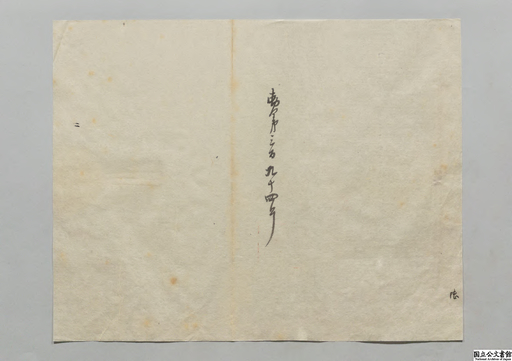 勅令第三百九十四号
二
国立公文書館
National Archives of Japan